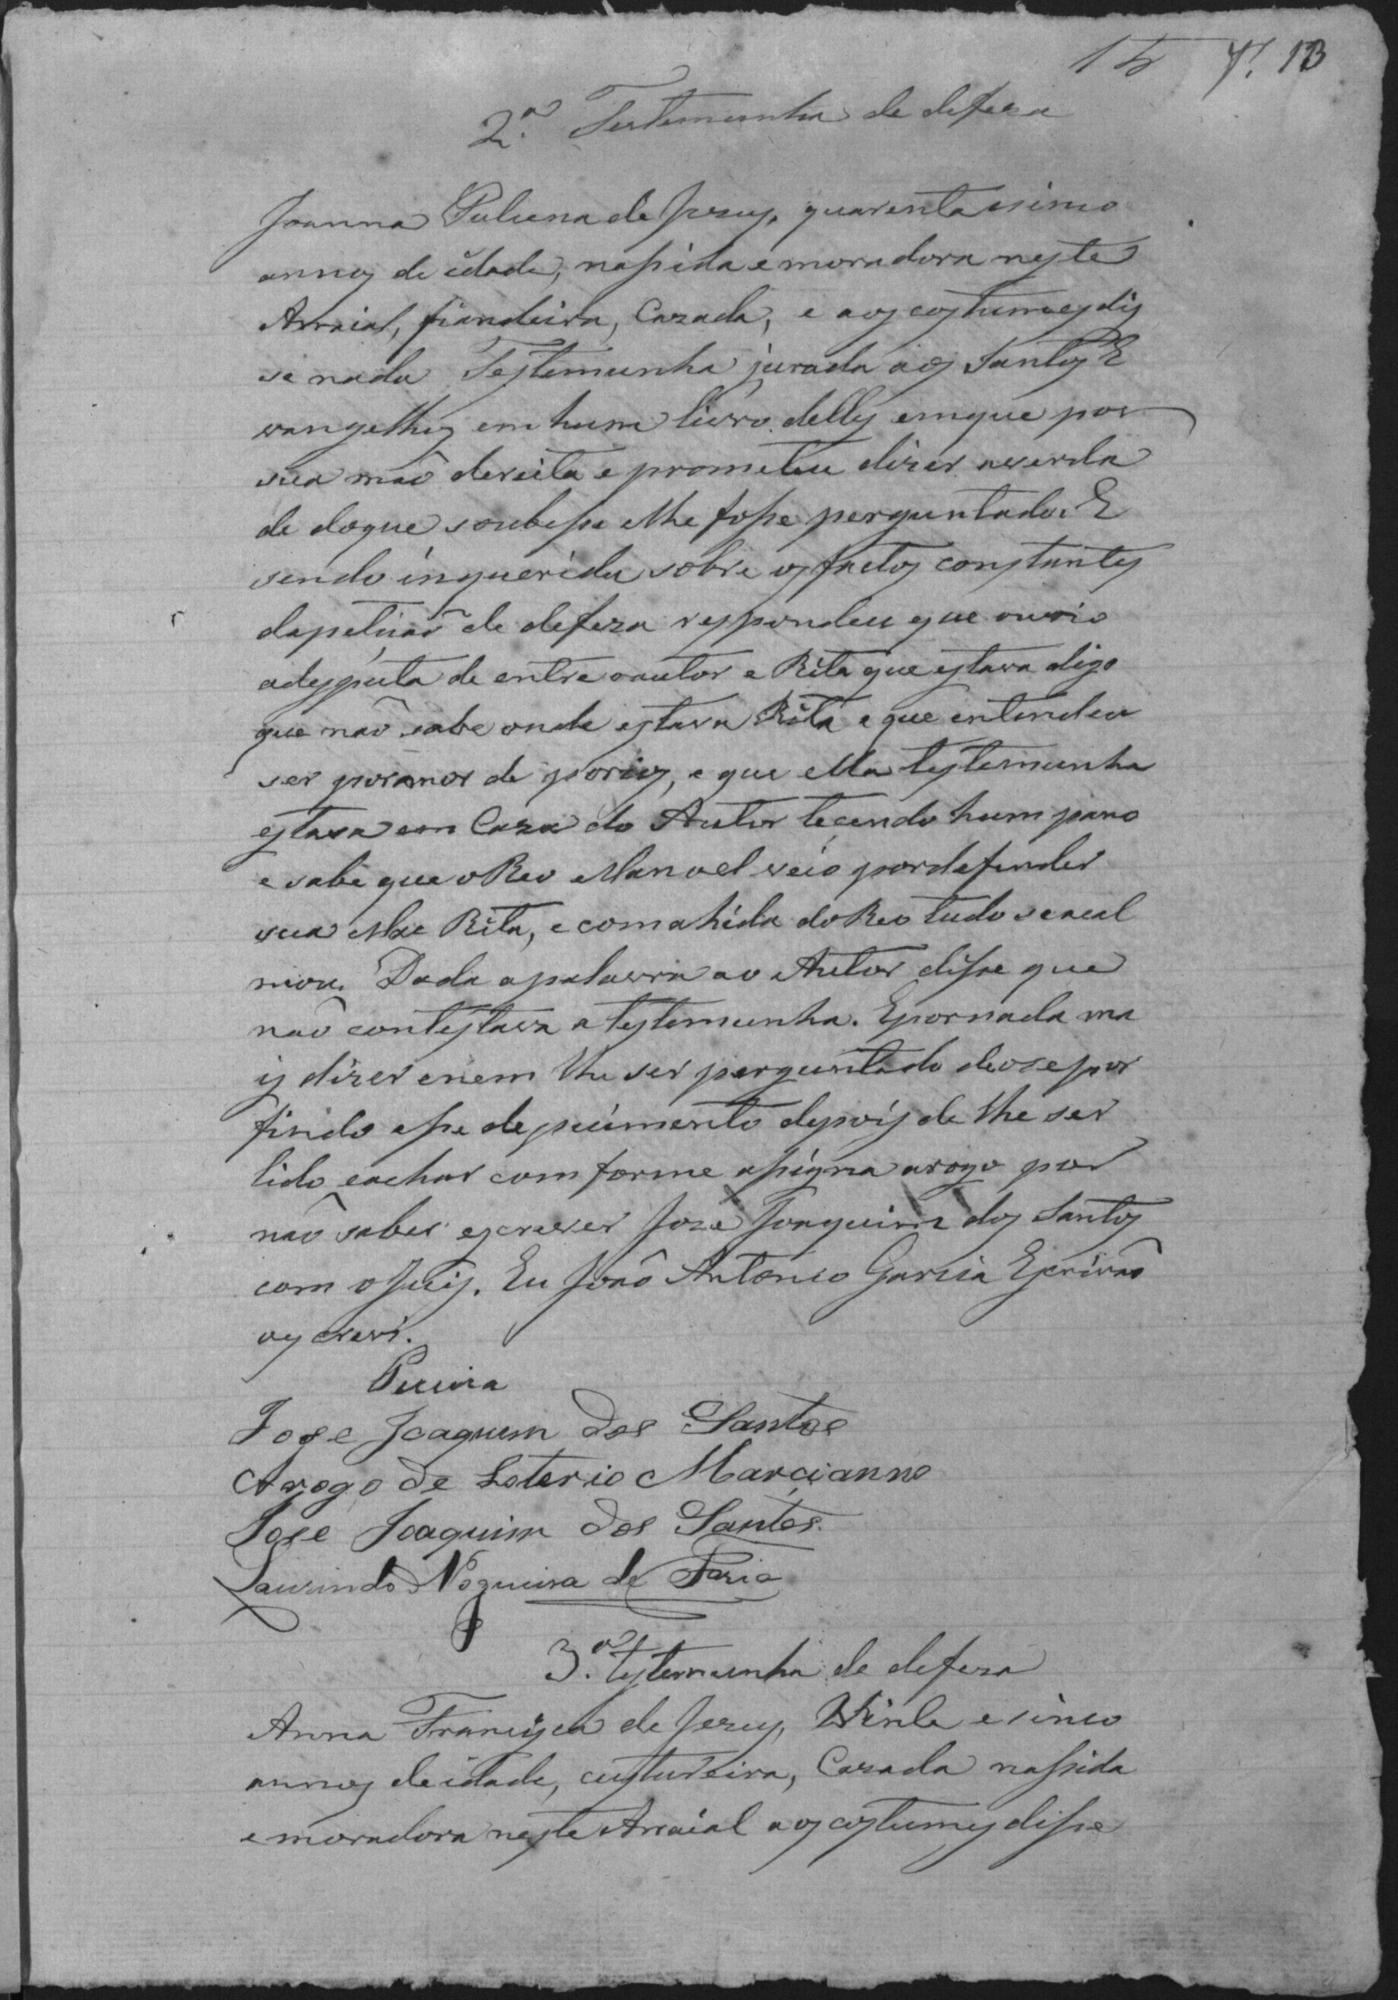 15 f. 13
2.a Testemunha de defeza
Joanna Paluna de Jezus, quarenta e sinco
annos de idade, nassida e moradora neste
Arraial, fiandeira, Cazada, e aos costumes dis
se nada Testemunha jurada aos Santos E
vangelhos em hum livro delles em que por
sua mão dereita e prometeu dizer averda
de doque soubesse e lhe fosse perguntado. E
sendo inquerida sobre os factos constantes
dapetição de defeza respondeu que ouvio
adesputa de entre o autor e Rita que estava digo
que não sabe onde estava Rita e que entendeu
ser poramor de porcos, e que ella testemunha
estava em Caza do Autor tecendo hum pano
e sabe que o Reo Manoel veio pordefender
sua Mae Rita, e com ahida do Reo tudo se acal
mou. Dada apalavra ao Autor disse que
não contestava a testemunha. E por nada ma
is dizer e nem lhe ser perguntado deose por
findo esse depuimento depois de lhe ser
lido e achar comforme assigna arogo por
não saber escrever Joze Joaquim dos Santos
com o Juis. Eu João Antonio Garcia Escrivão
oescrevi.
Pereira
Jose Joaquim dos Santos
Arogo de Loterio Marcianno
Jose Joaquim dos Santos.
Laurindo Nogueira de Faria
3.a testemunha de defeza
Anna Francisca de Jezus, Vinte e sinco
annos de idade, custureira, Cazada nassida
e moradora neste Arraial aos costumes disse